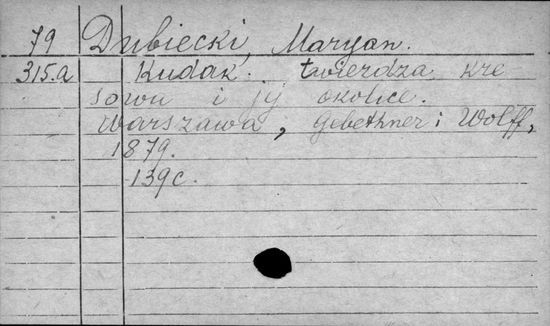 79 Dubiecki, Maryan.
315.a Kudak. twierdza kre
sowa i jej okolice.
Warszawa, Gebethner i Wolff,
1879.
139c.